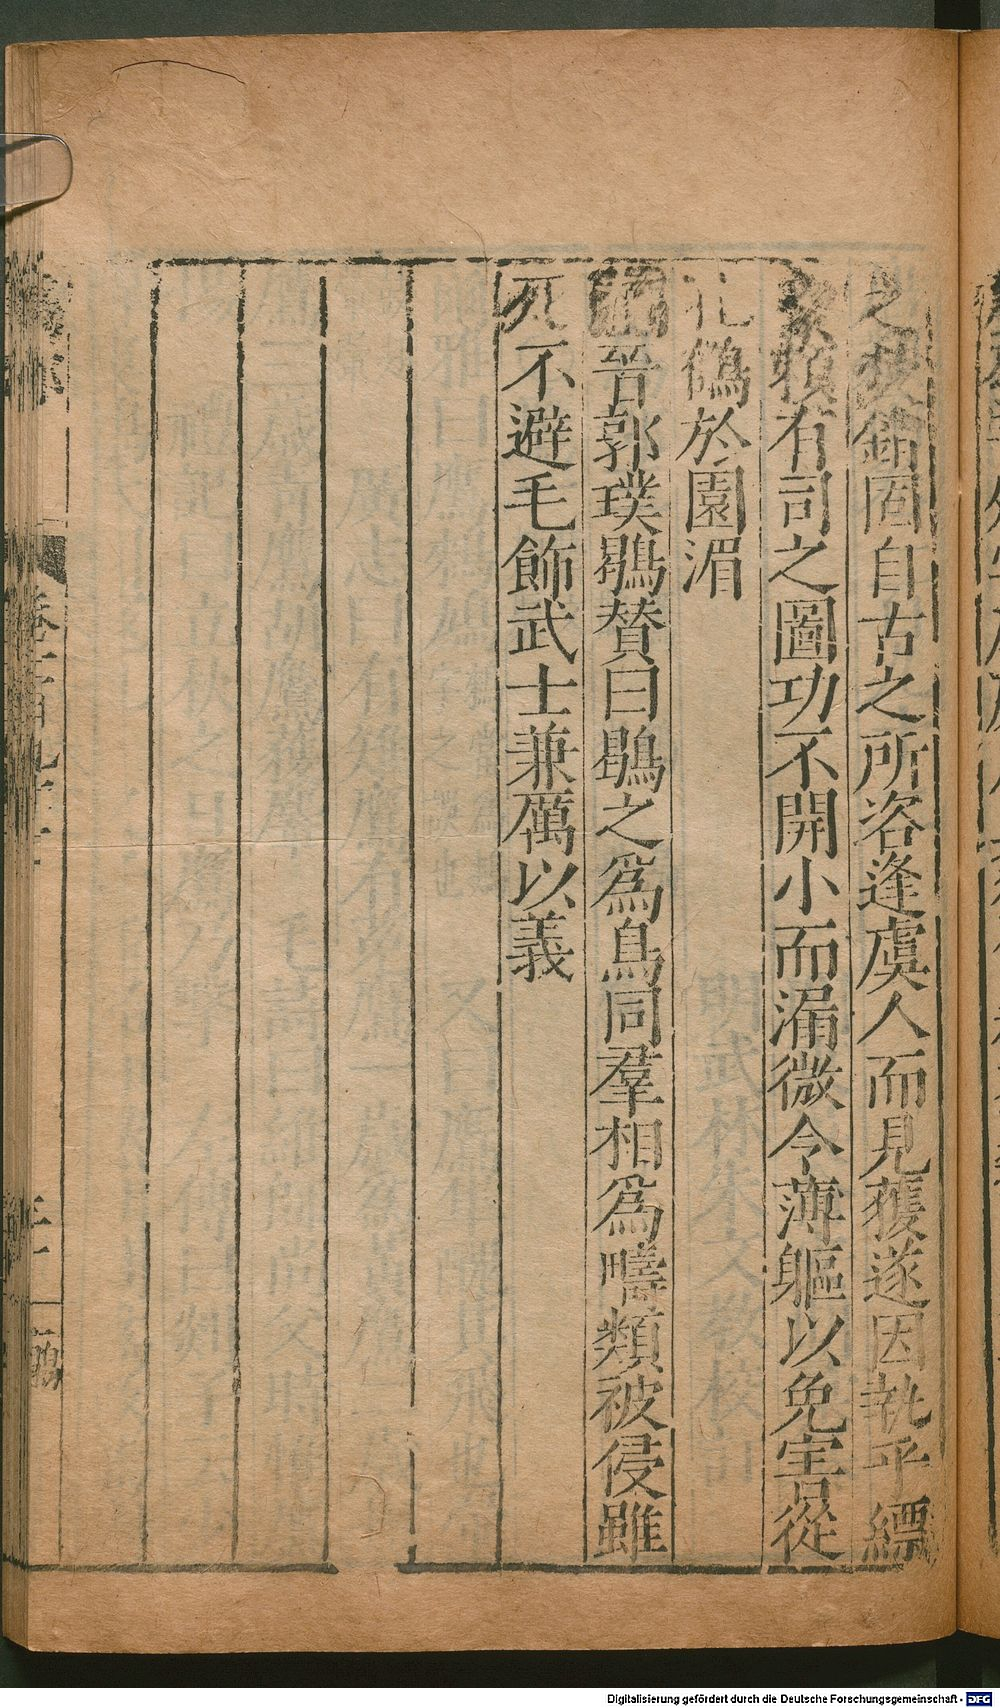 之焚銷固自古之所咨逢虞人而見獲遂因執乎縹
賴有司之圖功不開小而漏微令薄軀以免害從
孔於園湄
晉郭璞鶡贊曰鶡之為鳥同羣相為疇類被侵雖
死不避毛飾武士兼厲以義
Digitalisierung gefördert durch die Deutsche Forschungsgemeinschaft - DFG